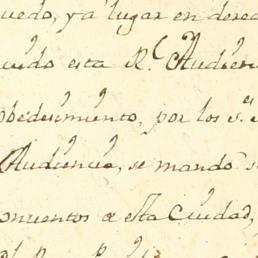 uedo, ya lugar en derec
cuido esta Rl Audien
obedesimiento, por los s.es
Audiencia, se mandó s
conventos de esta Ciudad,